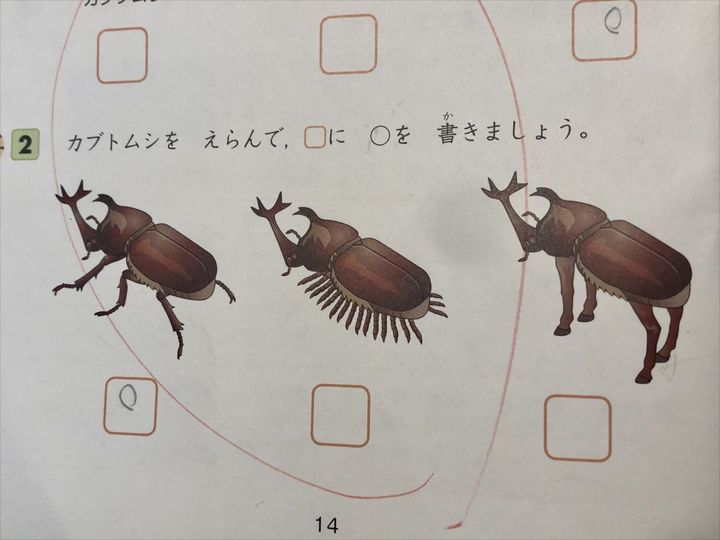 カブトムシ
2 カブトムシを えらんで，□に ○を 書きましょう。
か
14